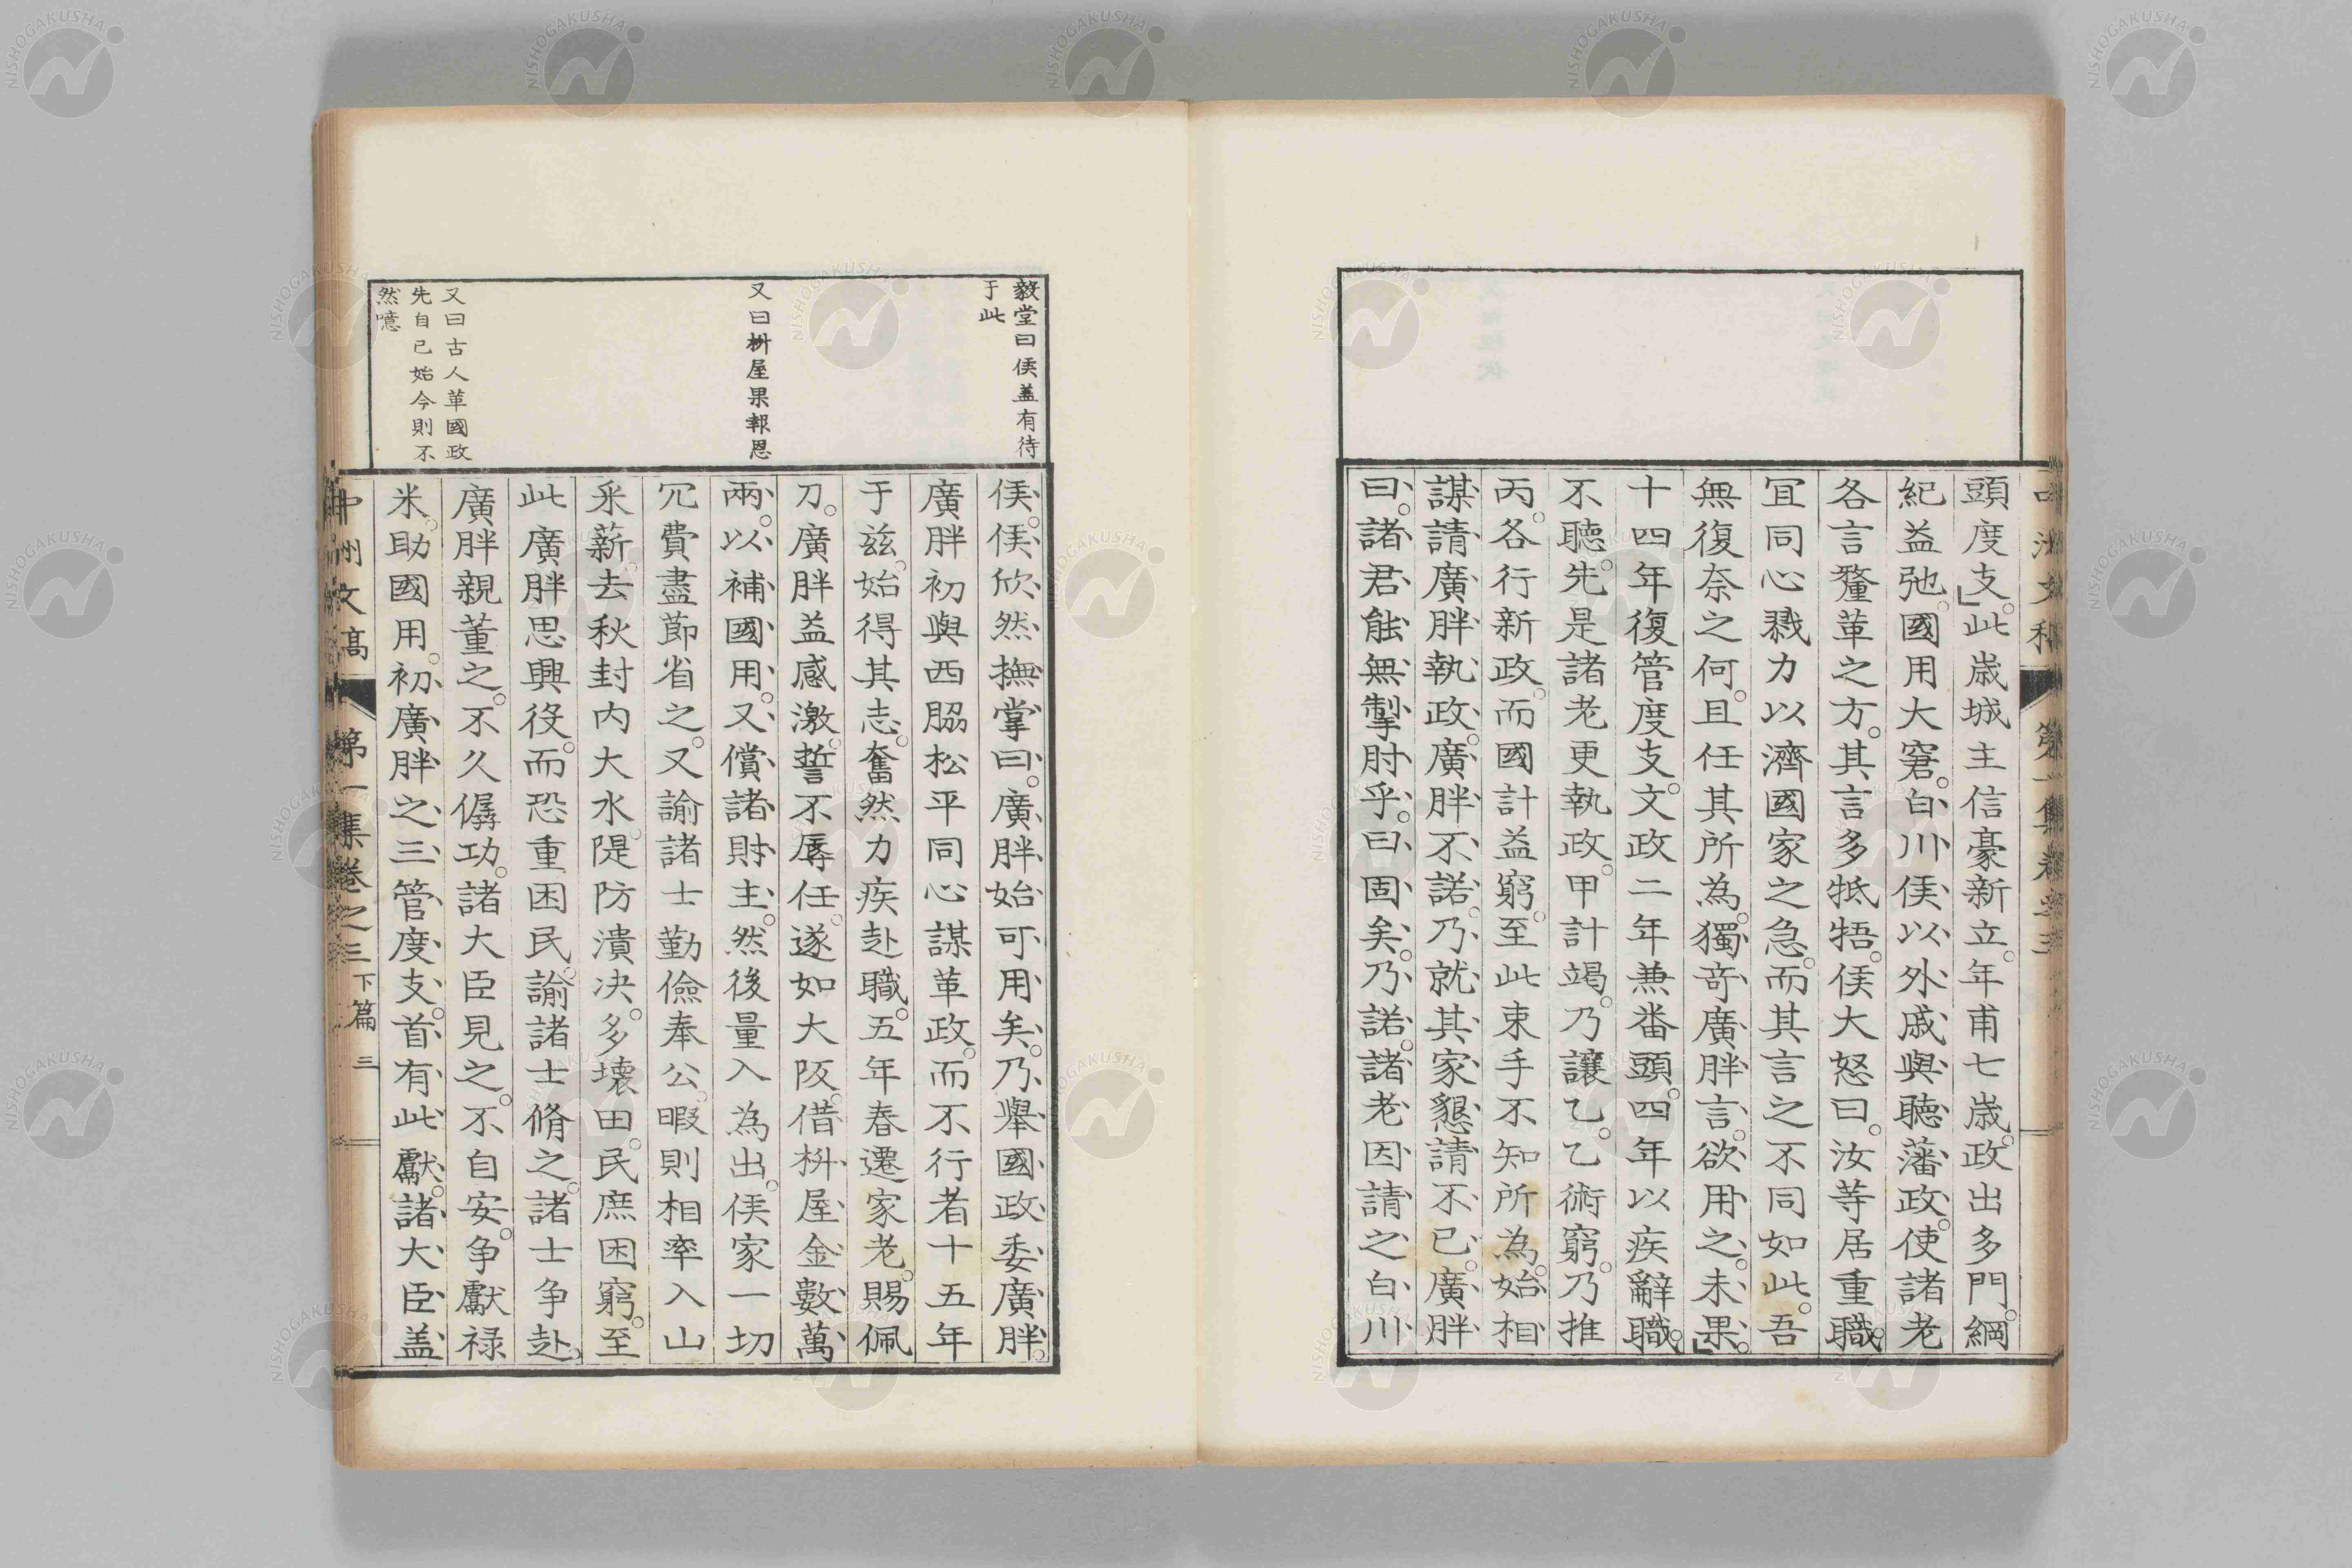 頭度支。此歳城主信豪新立。年甫七歳。政出多門。綱
紀益弛。國用大窘。白川侯以外戚與聽藩政。使諸老
各言釐革之方。其言多牴牾。侯大怒曰。汝等居重職。
宜同心戮力以濟國家之急。而其言之不同如此。吾
無復奈之何。且任其所為。獨奇廣胖言。欲用之。未果。
十四年復管度支。文政二年兼番頭。四年以疾辭職。
不聽。先是諸老更執政。甲計竭。乃讓乙。乙術窮。乃推
丙。各行新政。而國計益窮。至此束手不知所為。始相
謀請廣胖執政。廣胖不諾。乃就其家懇請不已。廣胖
曰。諸君能無掣肘乎。曰。固矣。乃諾。諸老因請之白川
毅堂曰侯蓋有待
于此
又曰枡屋果報恩
又曰古人革國政
先自己始今則不
然噫
侯。侯欣然撫掌曰。廣胖始可用矣。乃舉國政委廣胖。
廣胖初與西脇松平同心謀革政。而不行者十五年
于兹。始得其志。奮然力疾赴職。五年春遷家老。賜佩
刀。廣胖益感激。誓不辱任。遂如大阪。借枡屋金數萬
兩。以補國用。又償諸財主。然後量入為出。侯家一切
冗費盡節省之。又諭諸士勤儉奉公。暇則相率入山
采薪。去秋封内大水。隄防潰决。多壊田。民庶困窮。至
此廣胖思興役。而恐重困民。諭諸士脩之。諸士争赴。
廣胖親董之。不久僝功。諸大臣見之。不自安。争獻禄
米助國用。初廣胖之三管度支。首有此獻。諸大臣盖
中洲文稿 第一集卷之三下篇 三